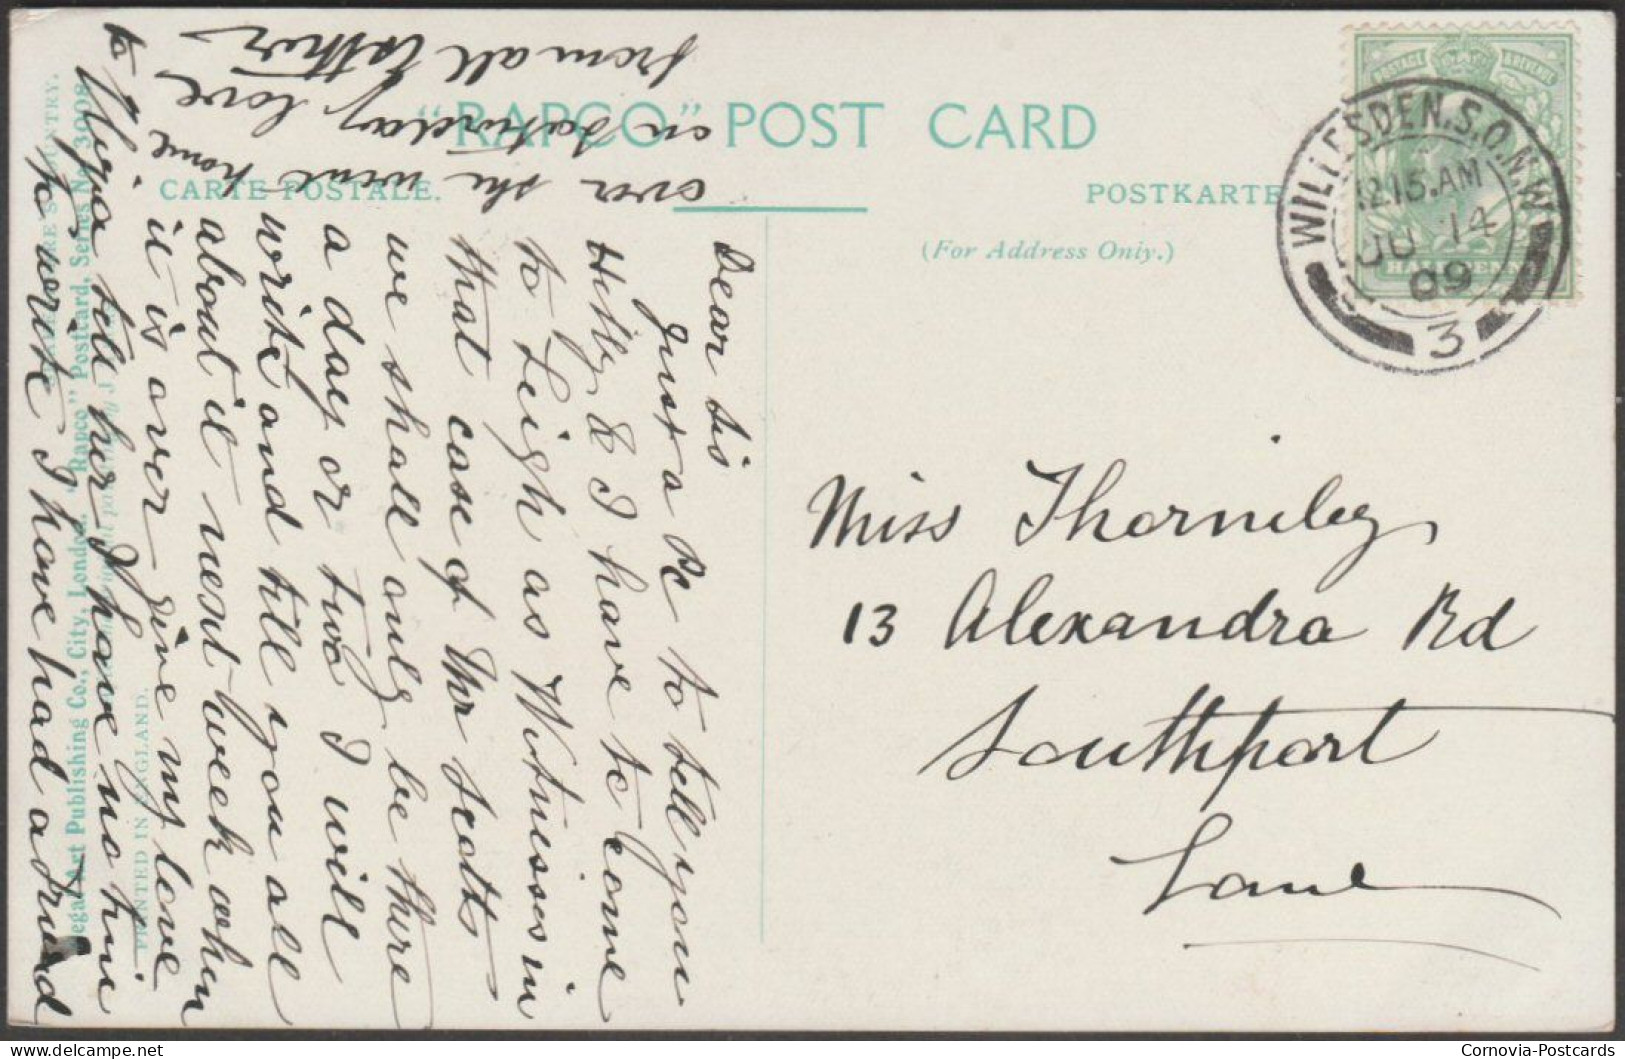 "RAPCO" POST CARD
CARTE POSTALE.
POSTKARTE
(For Address Only.)
WILLESDEN.S.O.N.W
12.15.AM
JU 14
09
3
POSTAGE & REVENUE
HALFPENNY
Miss Thorniley
13 Alexandra Rd
Southport
Lanc
Dear Sis
Just a Pc to tell you
Hilly & I have to come
to Leigh as Witnesses in
that case of Mr Scotts
we shall only be there
a day or two I will
write and tell you all
about it next week when
it is over Give my love
to tell her I have no time
to write I have had a
over she went home
on Saturday love
from all
Regal Art Publishing Co., City, London. "Rapco" Postcard, Series No. 3008.
PRINTED IN ENGLAND.
Cornovia-Postcards
the-postcard.com